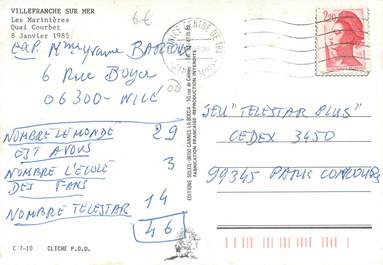 VILLEFRANCHE SUR MER
Les Marinières
Quai Courbet
8 Janvier 1985
6€
EXP. Mme Yvonne
6 Rue Boyer
06300 - NICE
NOMBRE LE MONDE 29
EST A VOUS
NOMBRE L'ÉCOLE 3
DES FANS
NOMBRE TELESTAR 14
46
C 7-10 CLICHE P.O.D.
EDITIONS SOLEIL - 06150 CANNES LA BOCCA
FABRICATION FRANÇAISE - REPRODUCTION INTERDITE
NICE CENTRE DE TRI
2,10
JEU "TELESTAR PLUS"
CEDEX 3450
99345 PARIS CONCOURS